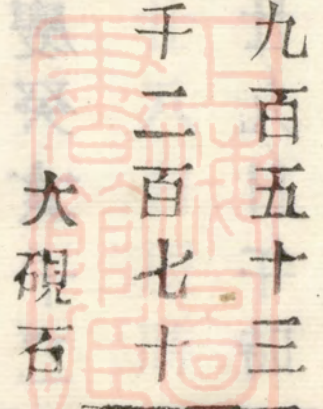 九百五十三
千二百七十
大硯石